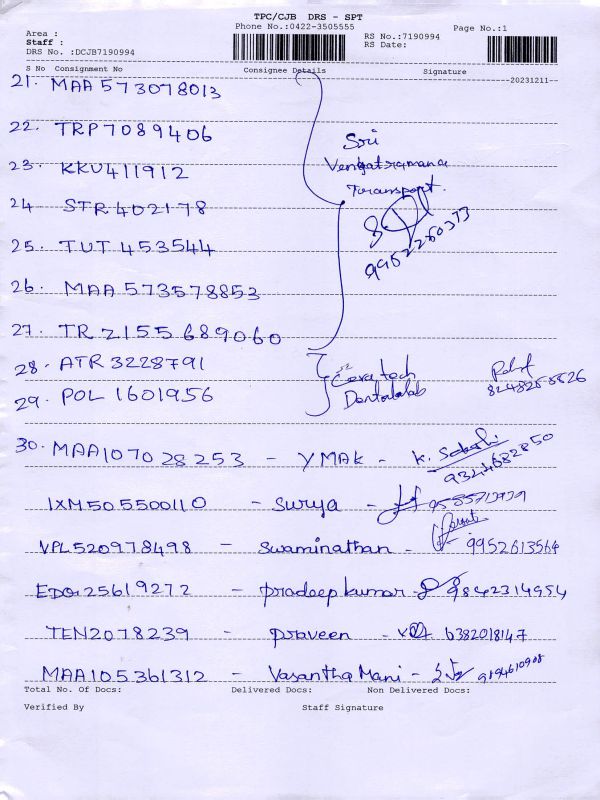 TPC/CJB DRS - SPT
Phone No.:0422-3505555
Page No.:1
Area :
RS No.:7190994
Staff :
RS Date:
DRS No. :DCJB7190994
S No Consignment No Consignee Details Signature
20231211
21. MAA 573078013
22. TRP7089406
23. KKU411912
24 STR402178
25. TUT 453544
26. MAA 573578853
27. TRZ155689060
Sri
Venkatramana
Transport.
9952260373
28. ATR 3228791
29. POL 1601956
Cera tech
Dentallab
30. MAA107028253 - YMAK - K.
9324682850
IXM505500110 - Surya -
VPL520978498 - Swaminathan - 9952613564
25619272 - pradeep kumar - 9842314954
TEN2078239 - praveen - 6382018147
MAA105361312 - Vasantha Mani -
Total No. Of Docs: Delivered Docs: Non Delivered Docs:
Verified By Staff Signature